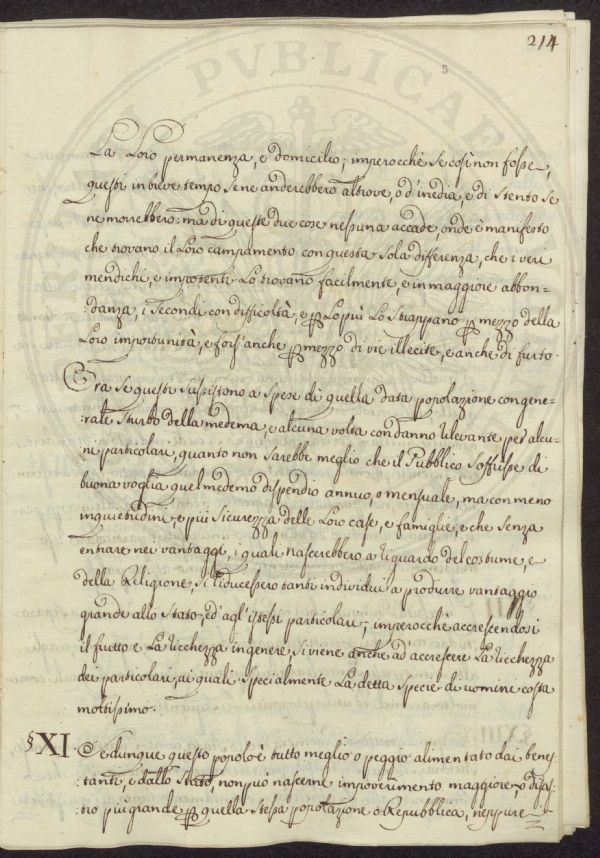 214
5
PVBLICAE
La Loro permanenza, e domicilio; imperocchè se così non fosse,
questi in breve tempo se ne anderebbero altrove, o d'inedia, e di stento se
ne morrebbero: ma di queste due cose nessuna accade, onde è manifesto
che trovano il Loro campamento con questa sola differenza, che i veri
mendichi, e impotenti Lo trovano facilmente, e in maggiore abbon-
:danza, i Secondi con difficoltà, e p Lo più Lo Strappano p mezzo della
Loro importunità, e fors'anche p mezzo di vie illecite, e anche di furto.
Ora se questi sussistono a spese di quella data popolazione con gene-
:rale sturbo della medema, e alcuna volta con danno rilevante per alcu-
:ni particolari, quanto non sarebbe meglio che il Pubblico soffrisse di
buona voglia quel medemo dispendio annuo, o mensuale, ma con meno
inquietudini, e più sicurezza delle Loro case, e famiglie, e che senza
entrare nei vantaggi, i quali nascerebbero a riguardo del costume, e
della Religione, si riducessero tanti individui a produrre vantaggio
grande allo Stato, ed agl'istessi particolari; imperocchè accrescendosi
il frutto e La ricchezza in genere, si viene anche ad accrescere La ricchezza
dei particolari, ai quali specialmente La detta specie di uomini costa
moltissimo.
§XI. Se dunque questo popolo è tutto meglio o peggio alimentato dai benes-
:tanti, e dallo Stato, non può nascerne impoverimento maggiore, o disas-
:tro più grande p quella stessa popolazione o Repubblica, neppure